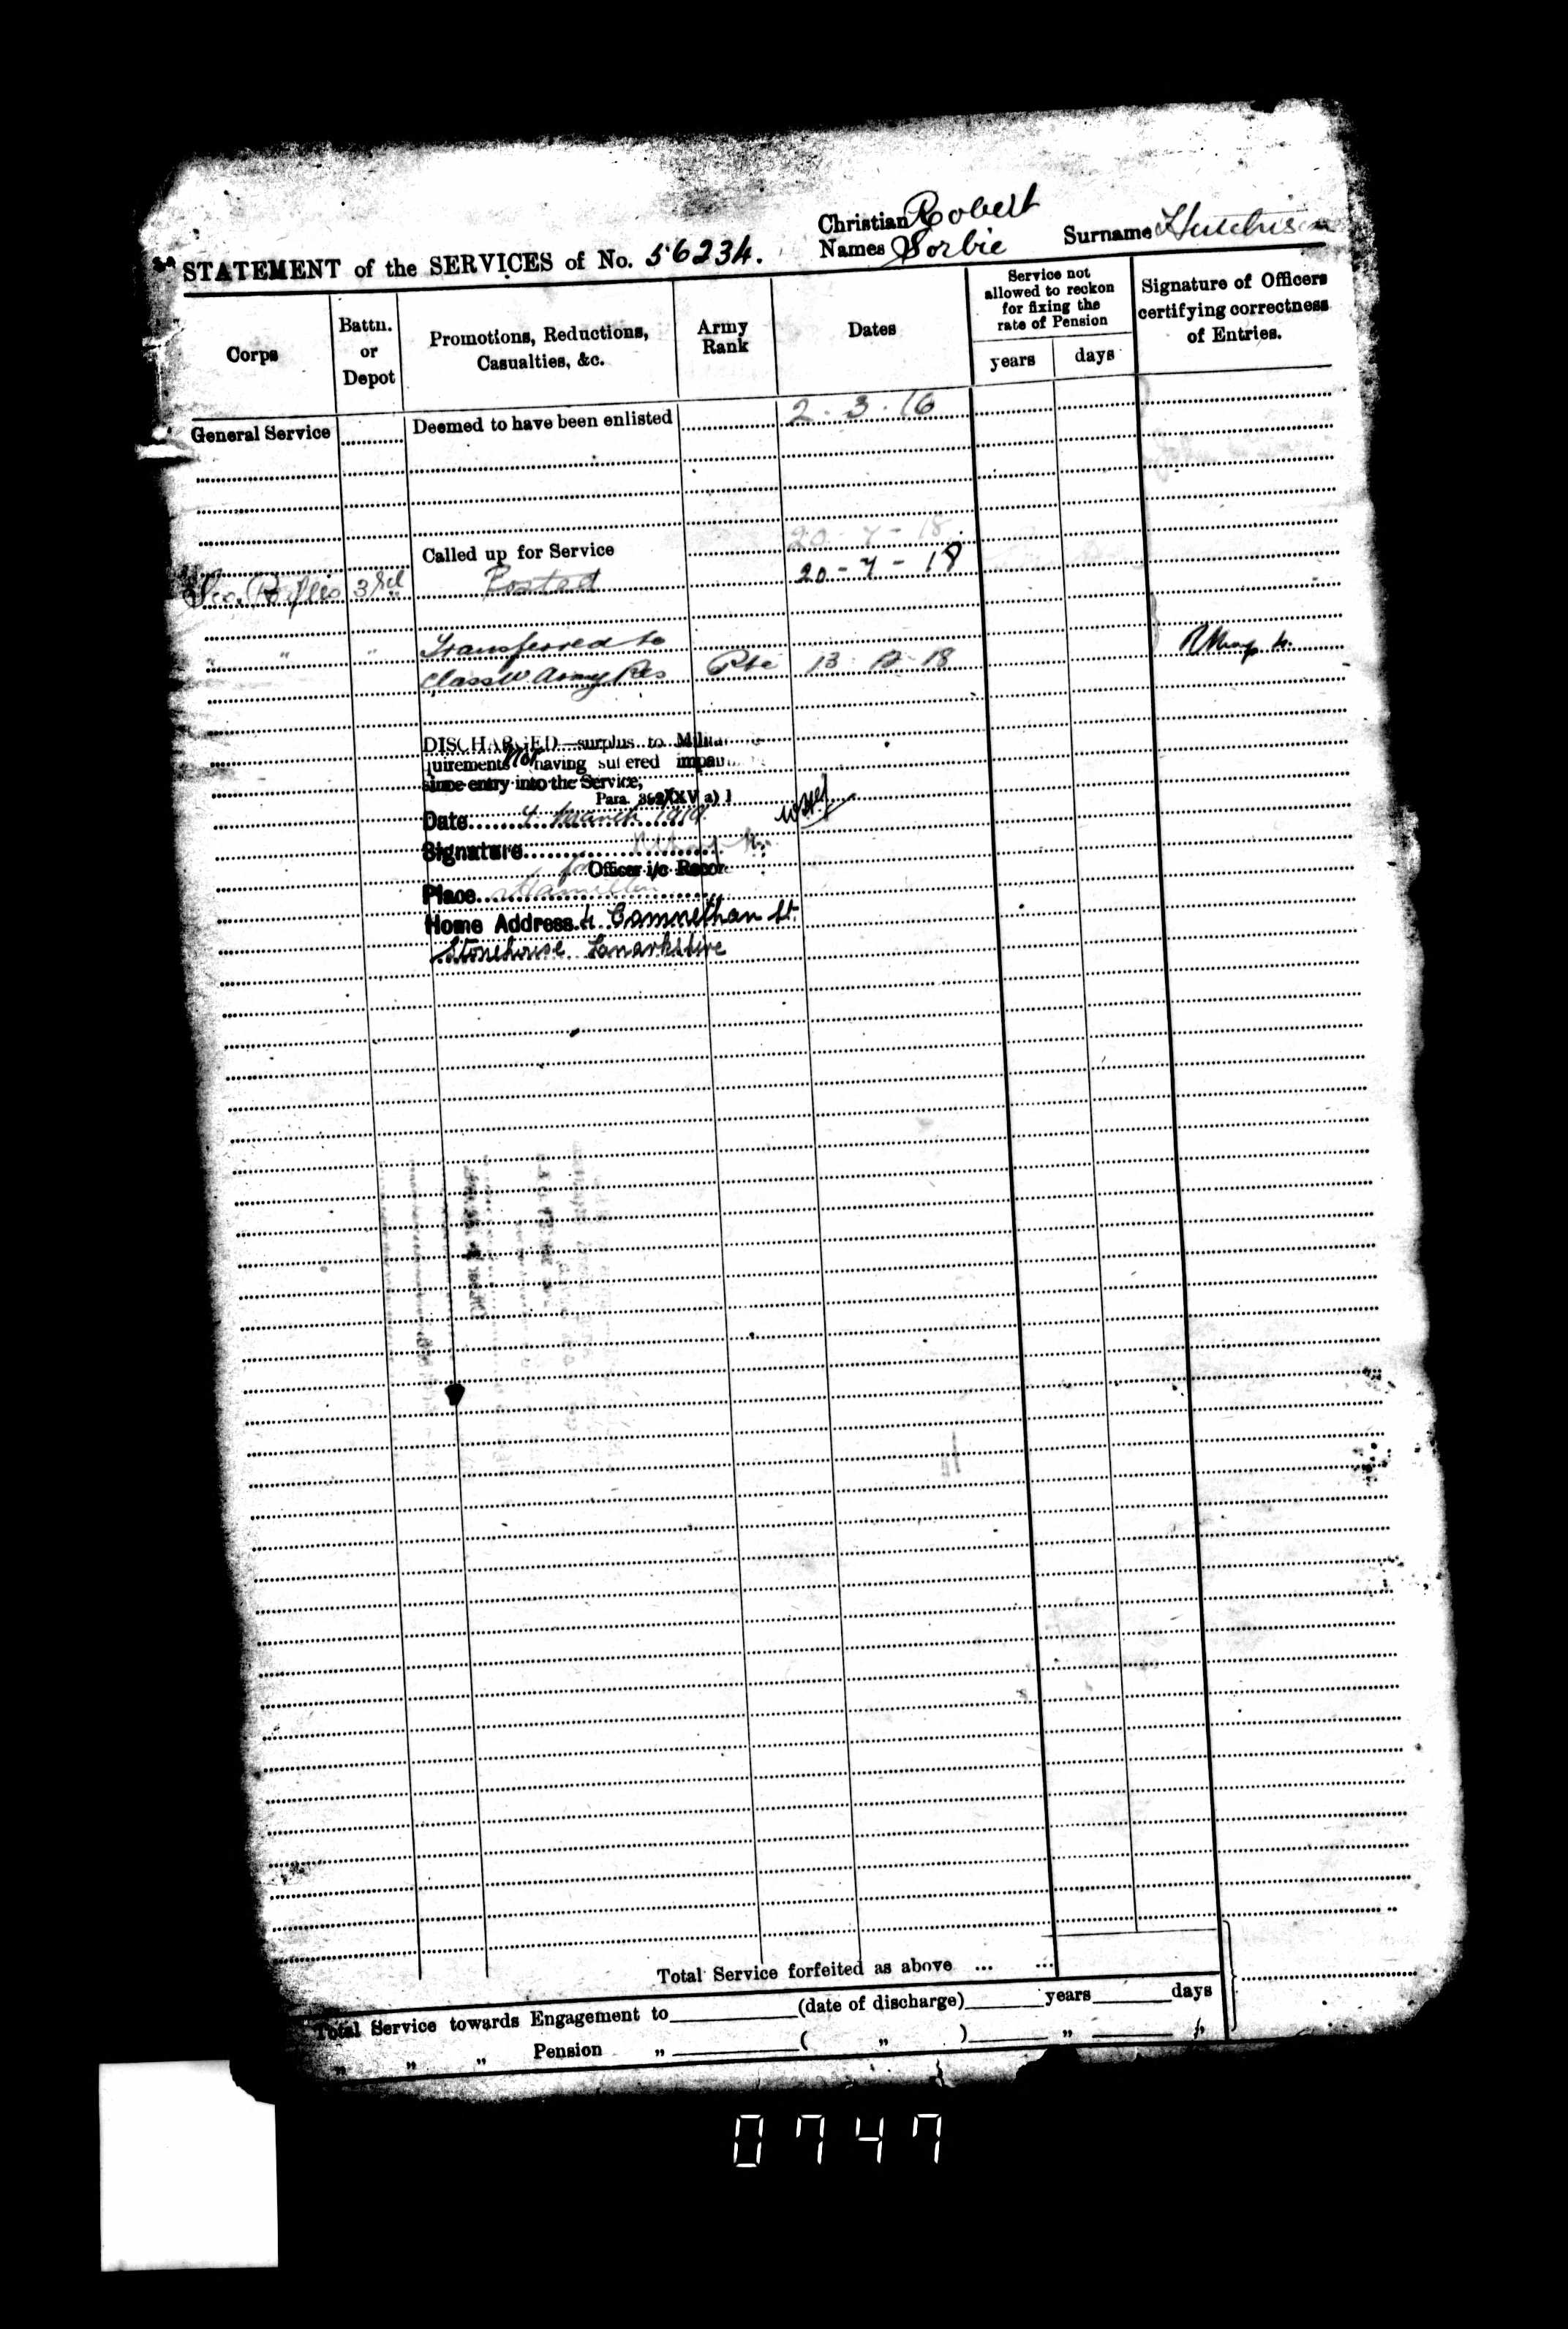 Christian Robert
Names Sorbie Surname Hutchison
STATEMENT of the SERVICES of No. 56234.
Corps
Battn. or Depot
Promotions, Reductions, Casualties, &c.
Army Rank
Dates
Service not allowed to reckon for fixing the rate of Pension
years days
Signature of Officers certifying correctness of Entries.
General Service Deemed to have been enlisted 2.3.16
Called up for Service 20-7-18
Sco. Rifles 3rd Posted 20-7-18
" " " Transferred to
Class W Army Res Pte 13 12 18
DISCHARGED—surplus to Milita
quirements Not having suffered impair
since entry into the Service,
Para. 392 (XXV a)
Date 4 March 1919
Signature
for Officer i/c Recor
Place Hamilton
Home Address. 4 Camnethan St.
Stonehouse Lanarkshire
Total Service forfeited as above ... ...
Total Service towards Engagement to (date of discharge) years days
" " " Pension " ( " ) " "
0747